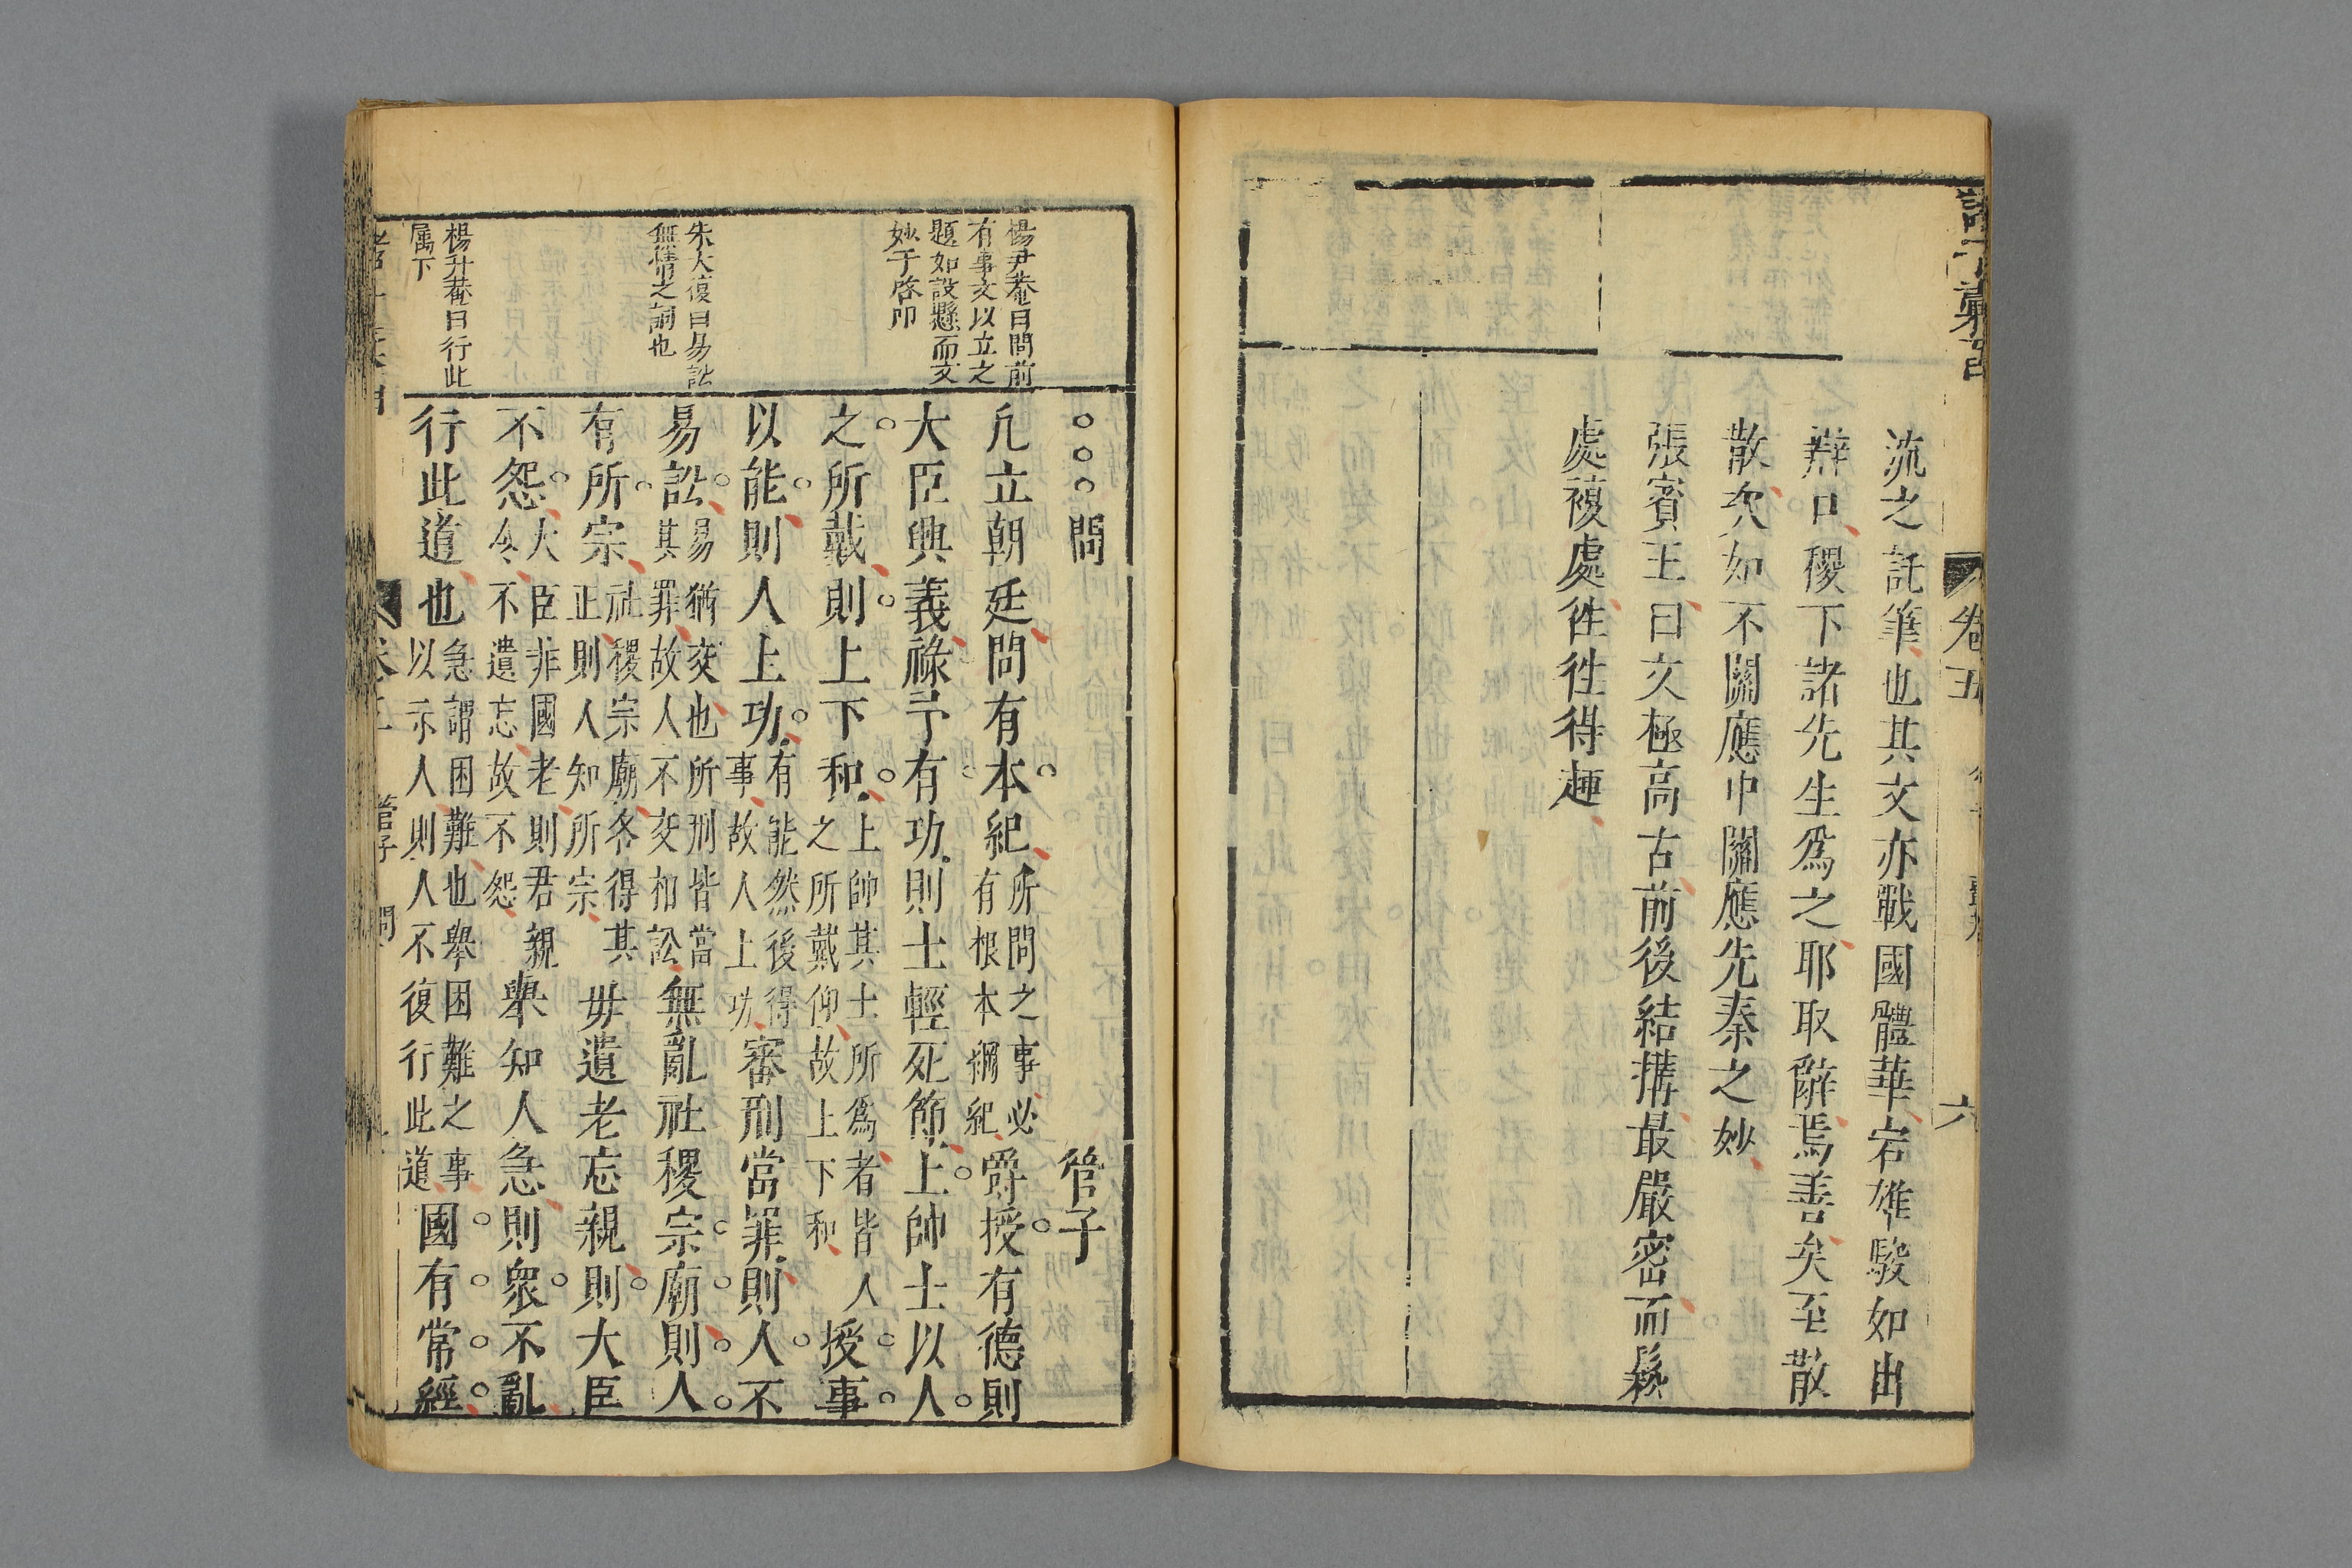 卷五
六
流之託筆也其文亦戰國體華宕雄駿如出
辯口稷下諸先生爲之耶取辭焉善矣至散
散次如不關應中關應先秦之妙
張賓王曰文極高古前後結搆最嚴密而鬆
處複處徃徃得趣
楊升菴曰問前
有事文以立之
題如設懸而文
妙于啓卬
朱大復曰易訟
無情之詞也
楊升菴曰行此
属下
問 管子
凡立朝廷問有本紀所問之事必有根本綱紀爵授有德則
大臣興義祿予有功則士輕死節上帥士以人
之所戴則上下和上帥其士所爲者皆人之所戴仰故上下和授事
以能則人上功有能然後得事故人上功審刑當罪則人不
易訟易猶交也所刑皆當其罪故人不交相訟無亂社稷宗廟則人
有所宗社稷宗廟各得其正則人知所宗毋遺老忘親則大臣
不怨大臣非國老則君親今不遺忘故不怨舉知人急則衆不亂
行此道也急謂困難也舉困難之事以示人則人不復行此道國有常經
管子 問